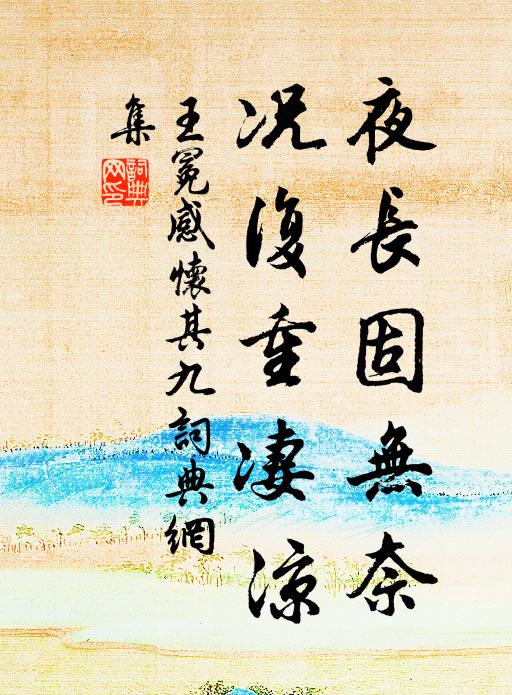 夜長固無奈
況復重淒涼
王冕感懷其九詞典網
集
詞典
网印